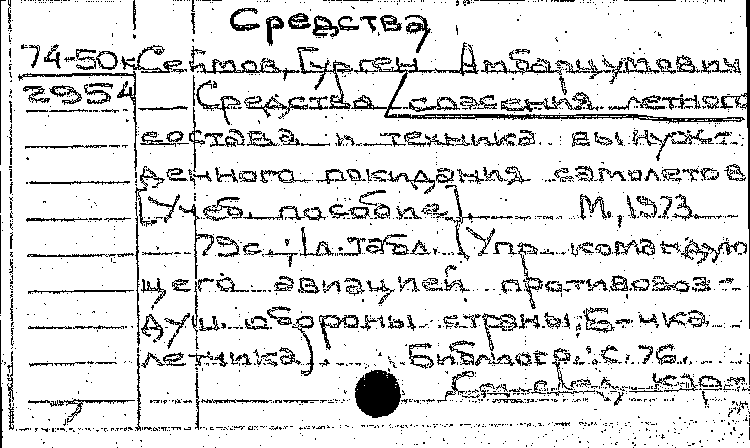 Средства
74-50к Сеймов, Гурген Амбарцумович
2954 Средства спасения летного
состава и техника вынуж-
денного покидания самолетов
[Учеб. пособие]. М., 1973.
79с.; 1 л. табл. (Упр. командую-
щего авиацией противовоз-
душ. обороны страны. Б-чка
летчика). Библиогр.: с. 76.
См. след. карт